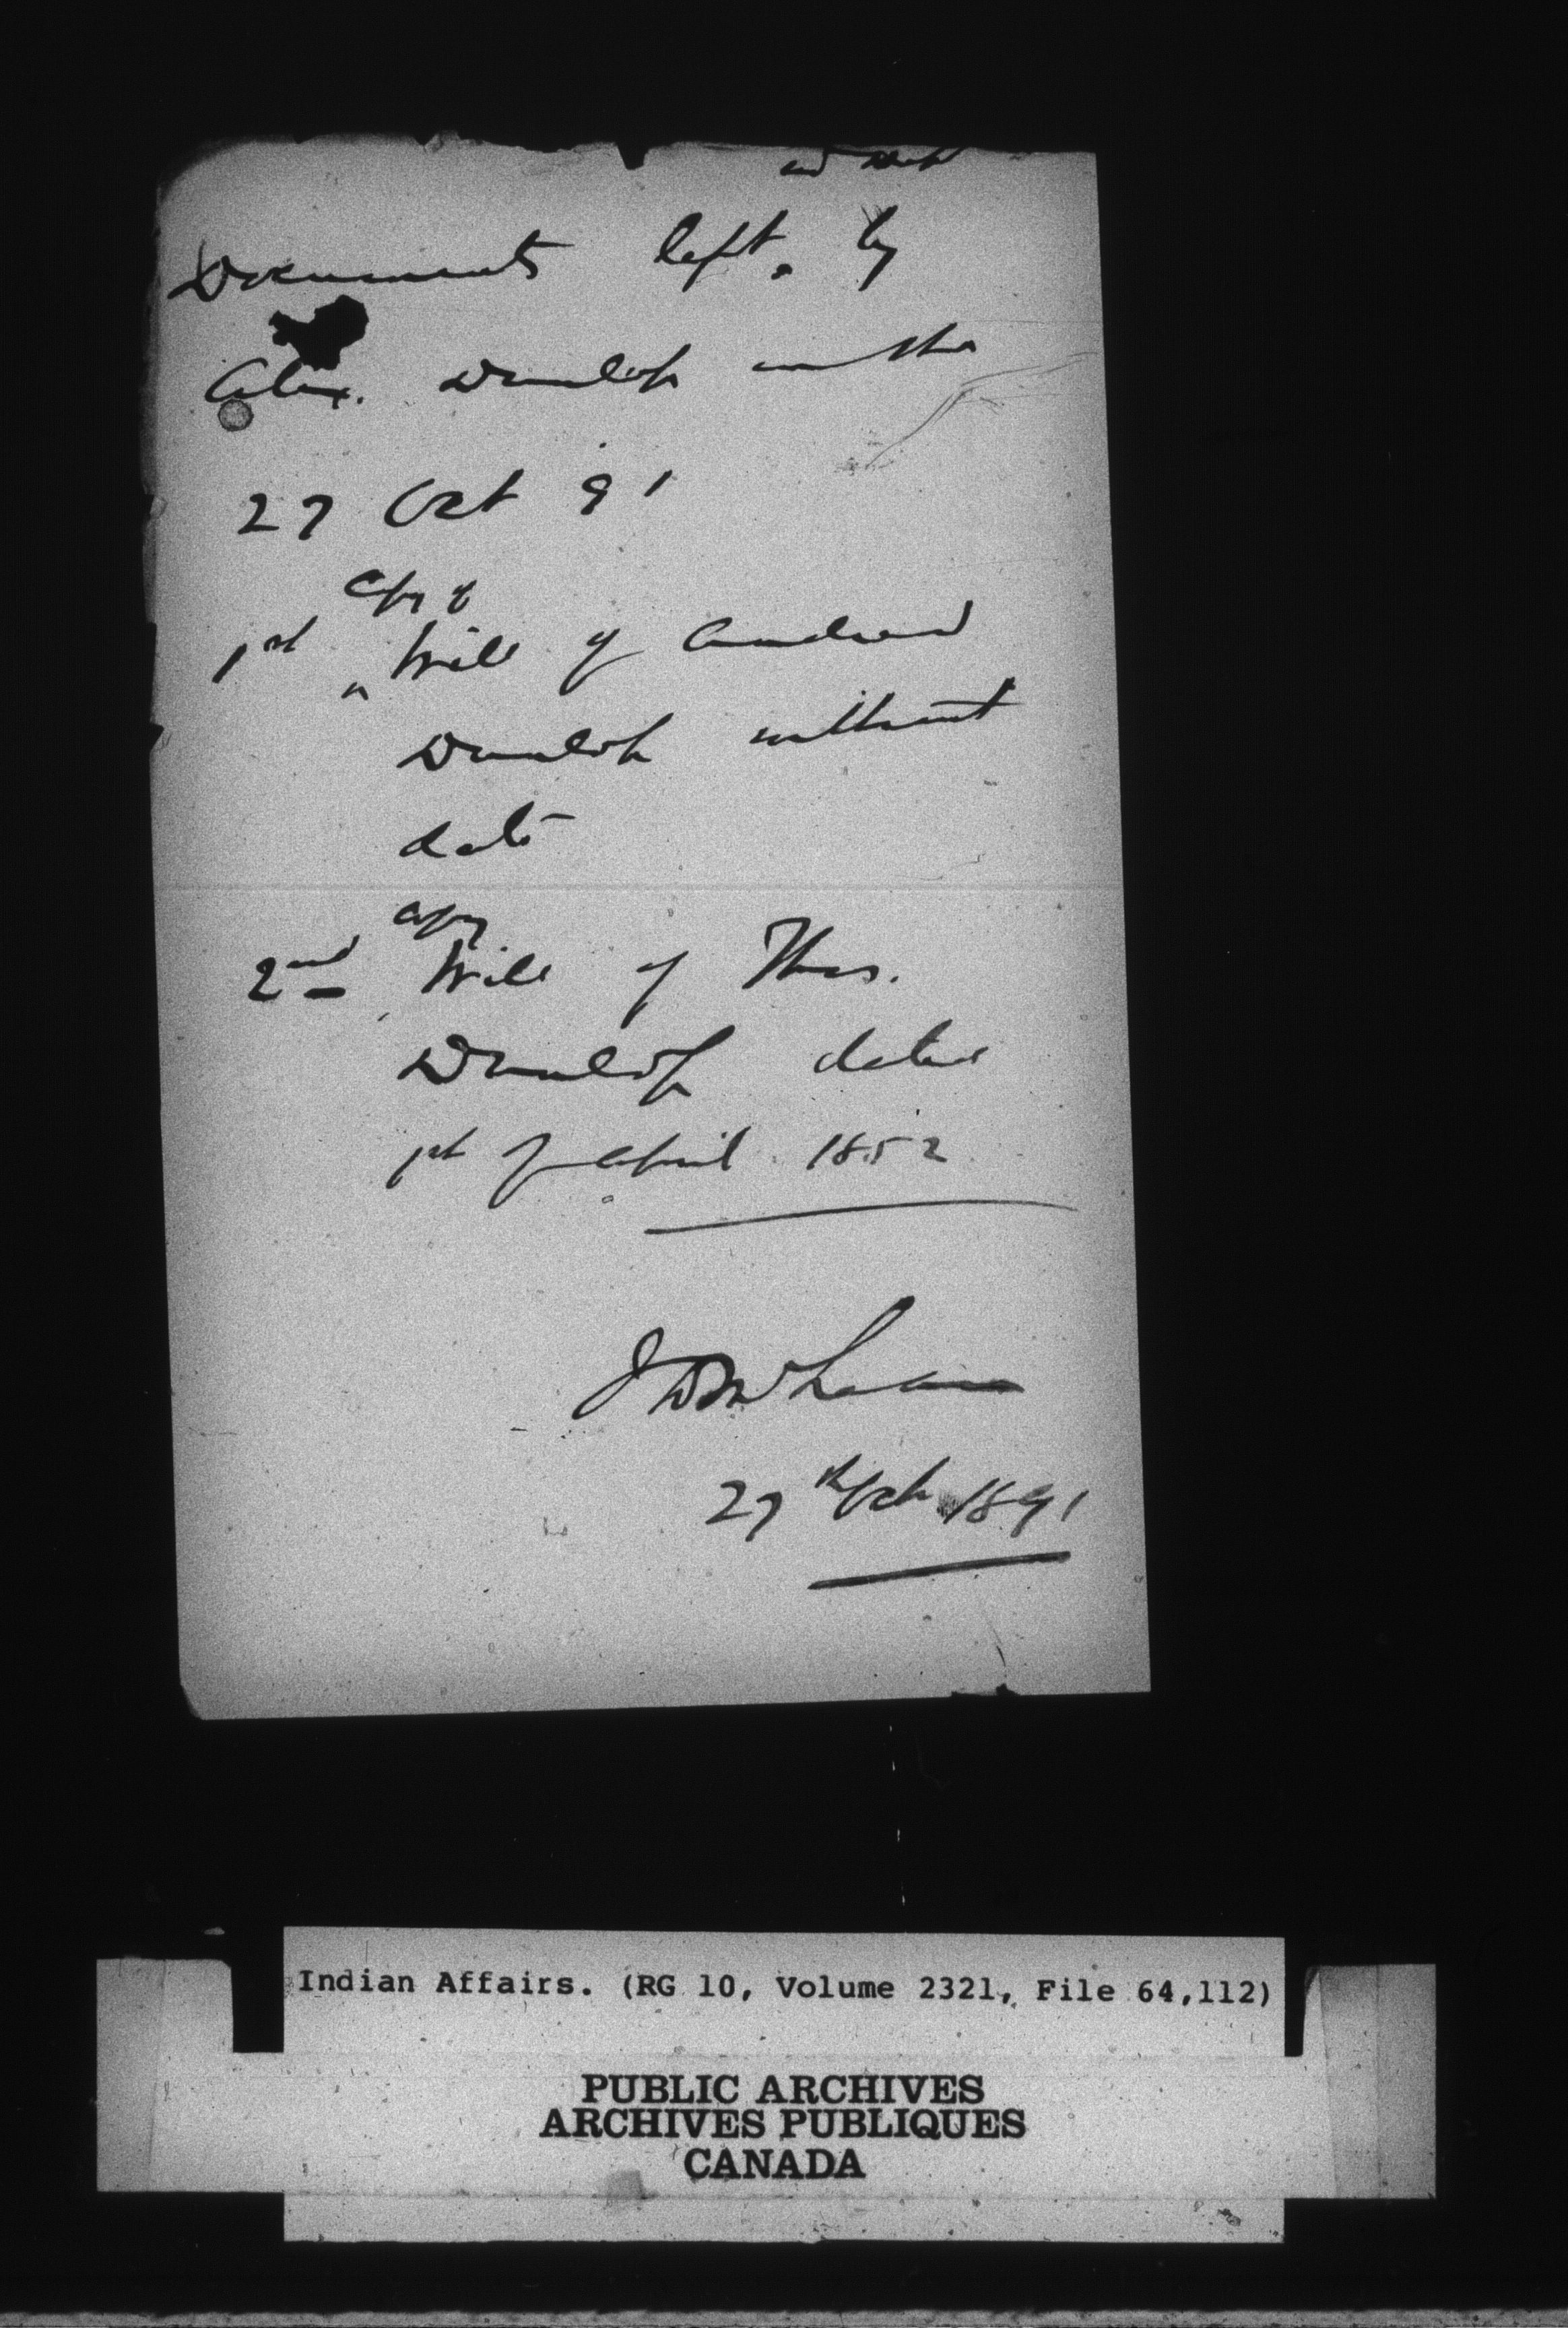 Documents left by
Alex. Dunlop on the
27 Oct 91
copy of
1st Will of Andrew
Dunlop without
date
copy
2nd Will of Thos.
Dunlop dated
1st of April 1852
27th Oct 1891
Indian Affairs. (RG 10, Volume 2321, File 64,112)
PUBLIC ARCHIVES
ARCHIVES PUBLIQUES
CANADA